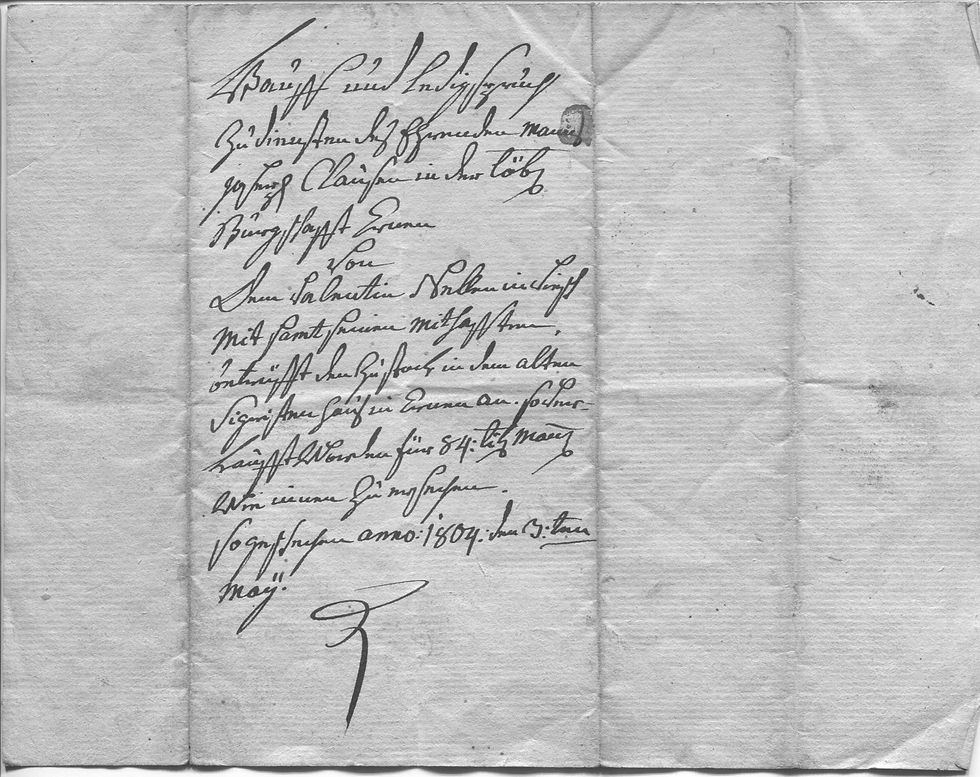 Kauff und ledigspruch
Zu diensten des Ehrenden Manns
joseph Clausen in der
Burgschafft Ernen
Von
Dem Valentin Nellen in Viesch
Mit samt seinen mithafften,
in dem alten
Sigristen haus in Ernen an. so Ver-
kaufft Worden für 84: Maz
Wie innen Zu ersechen.
so geschechen anno: 1804: den 3: ten
Maÿ: